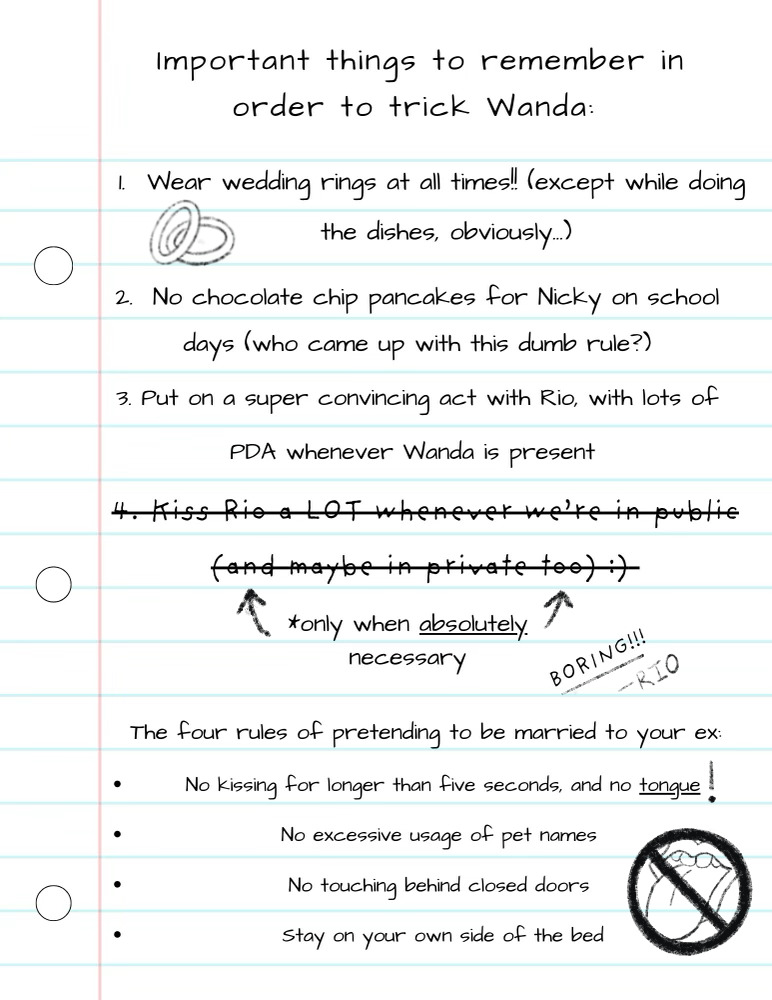 Important things to remember in
order to trick Wanda:
1. Wear wedding rings at all times!! (except while doing
the dishes, obviously...)
2. No chocolate chip pancakes for Nicky on school
days (who came up with this dumb rule?)
3. Put on a super convincing act with Rio, with lots of
PDA whenever Wanda is present
4. Kiss Rio a LOT whenever we're in public
(and maybe in private too) :)
*only when absolutely
necessary
BORING!!!
—RIO
The four rules of pretending to be married to your ex:
• No kissing for longer than five seconds, and no tongue!
• No excessive usage of pet names
• No touching behind closed doors
• Stay on your own side of the bed